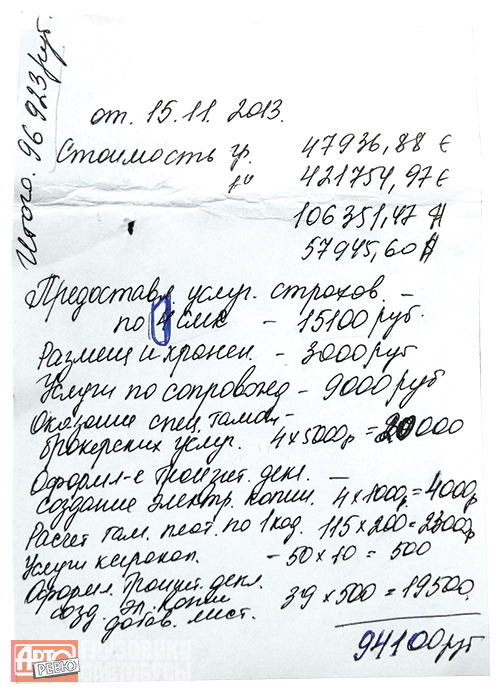 Итого. 96 923 руб.
от. 15.11. 2013.
Стоимость гр. 47936,88 €
421754,97 €
106351,47
57945,60
Предоставл. услуг. страхов. –
по 4 СМR – 15100 руб.
Размещ и хранен. – 3000 руб
Услуги по сопровожд – 9000 руб
Оказание спец. тамож-
брокерских услуг. 4 x 5000р = 20000
Оформл-е транзит. декл. –
создание электр. копии. 4 x 1000р = 4000р
Расчет там. плат. по 1 код. 115 x 200 = 23000р
Услуги ксерокоп. – 50 x 10 = 500
Оформл. Транзит. декл.
созд. Эл. копии 39 x 500 = 19500.
добав. лист.
94100 руб
АВТО
РЕВЮ
ГРУЗОВИКИ
АВТОБУСЫ